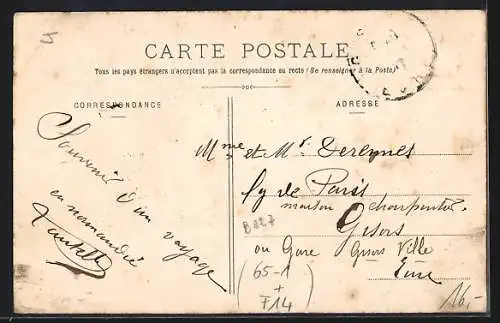 4
CARTE POSTALE
Tous les pays étrangers n'acceptent pas la correspondance au recto (Se renseigner à la Poste)
CORRESPONDANCE
ADRESSE
Souvenir d'un voyage
en normandie
Mme et Mr
fg de Paris
maison charpentier
Gisors
ou Gare Gisors Ville
Eure
B827
(65-1
+
F14)
16.-